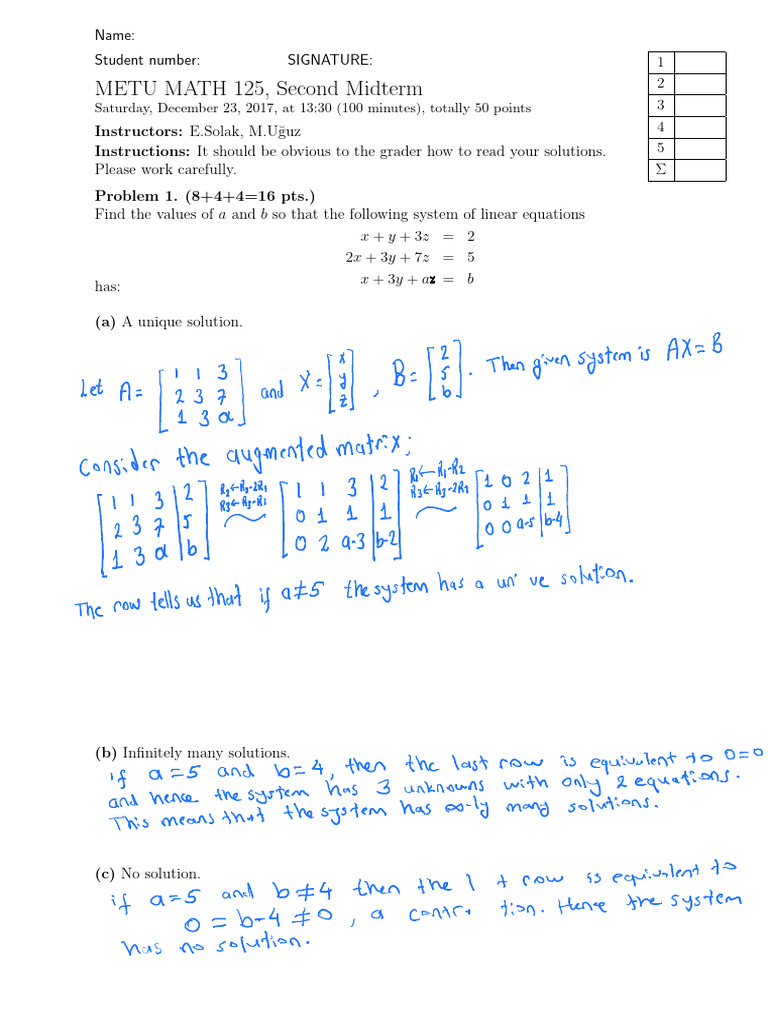 Name:
Student number: SIGNATURE:
METU MATH 125, Second Midterm
Saturday, December 23, 2017, at 13:30 (100 minutes), totally 50 points
Instructors: E.Solak, M.Uğuz
Instructions: It should be obvious to the grader how to read your solutions.
Please work carefully.
1
2
3
4
5
Σ
Problem 1. (8+4+4=16 pts.)
Find the values of a and b so that the following system of linear equations
x + y + 3z = 2
2x + 3y + 7z = 5
x + 3y + az = b
has:
(a) A unique solution.
Let A = [1 1 3; 2 3 7; 1 3 a] and X = [x; y; z], B = [2; 5; b]. Then given system is AX = B
Consider the augmented matrix;
[1 1 3 | 2; 2 3 7 | 5; 1 3 a | b] R2←R2-2R1 R3←R3-R1 [1 1 3 | 2; 0 1 1 | 1; 0 2 a-3 | b-2] R1←R1-R2 R3←R3-2R2 [1 0 2 | 1; 0 1 1 | 1; 0 0 a-5 | b-4]
The row tells us that if a≠5 the system has a solution.
(b) Infinitely many solutions.
if a=5 and b=4, then the last row is equivalent to 0=0
and hence the system has 3 unknowns with only 2 equations.
This means that the system has ∞-ly many solutions.
(c) No solution.
if a=5 and b≠4 then the row is equivalent to
0 = b-4 ≠0, a Hence the system
has no solution.